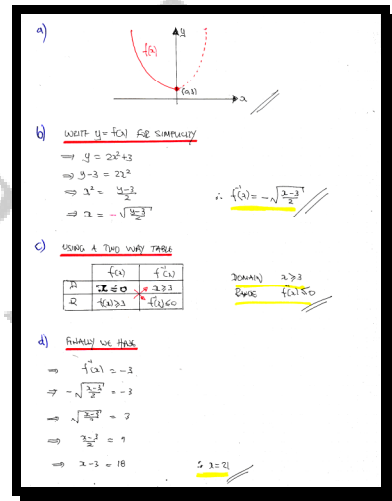 a)
y
f(x)
(0,3)
x
b) WRITE y = f(x) FOR SIMPLICITY
⇒ y = 2x²+3
⇒ y-3 = 2x²
⇒ x² = (y-3)/2
⇒ x = -√((y-3)/2)
∴ f⁻¹(x) = -√((x-3)/2)
c) USING A TWO WAY TABLE
f(x) f⁻¹(x)
D x ≤ 0 x ≥ 3
R f(x) ≥ 3 f⁻¹(x) ≤ 0
DOMAIN x ≥ 3
RANGE f⁻¹(x) ≤ 0
d) FINALLY WE HAVE
⇒ f⁻¹(x) = -3
⇒ -√((x-3)/2) = -3
⇒ √((x-3)/2) = 3
⇒ (x-3)/2 = 9
⇒ x-3 = 18
∴ x = 21